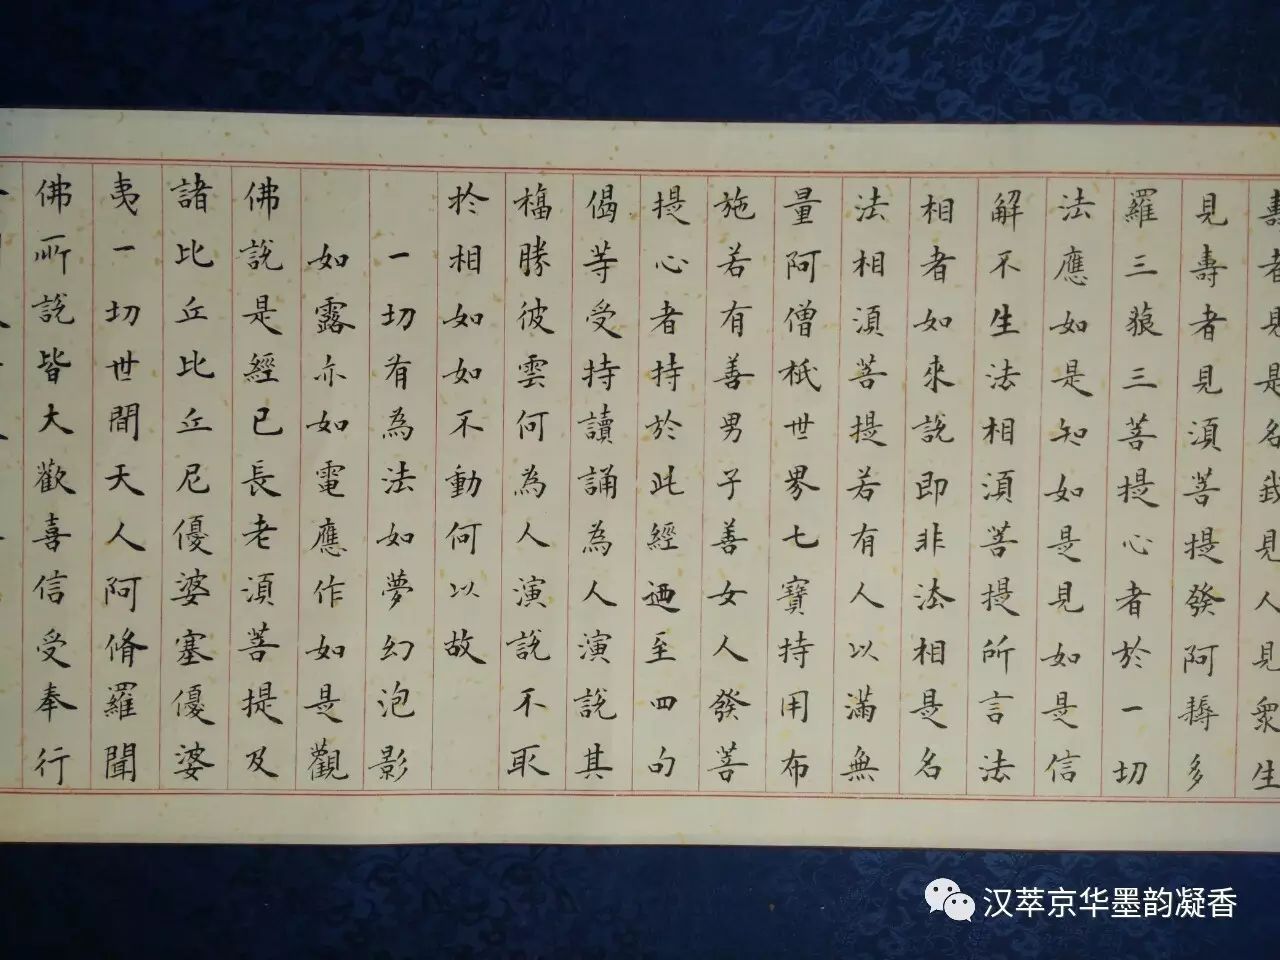 壽者見是名我見人見衆生
見壽者見須菩提發阿耨多
羅三藐三菩提心者於一切
法應如是知如是見如是信
解不生法相須菩提所言法
相者如來說即非法相是名
法相須菩提若有人以滿無
量阿僧祇世界七寶持用布
施若有善男子善女人發菩
提心者持於此經迺至四句
偈等受持讀誦為人演說其
福勝彼雲何為人演說不取
於相如如不動何以故
一切有為法如夢幻泡影
如露亦如電應作如是觀
佛說是經已長老須菩提及
諸比丘比丘尼優婆塞優婆
夷一切世間天人阿脩羅聞
佛所說皆大歡喜信受奉行
汉萃京华墨韵凝香